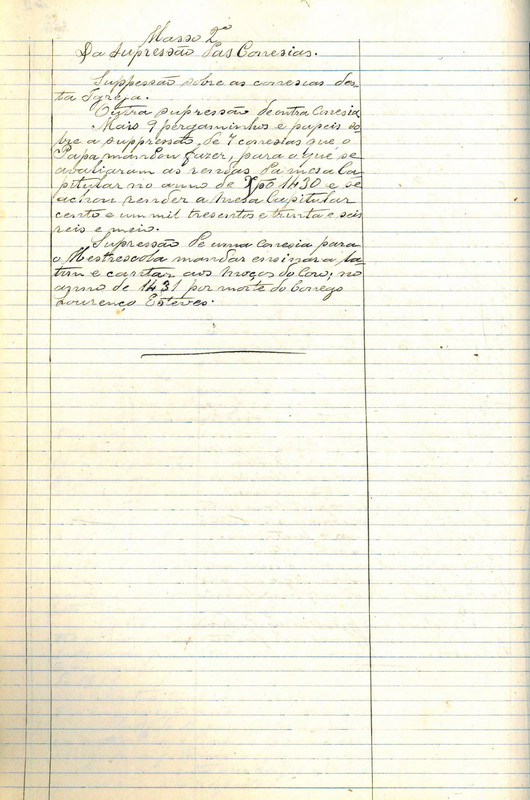 Masso 2º
Da Supressão Das Conesias.
Suppessão sobre as conesias des-
ta Igreja.
Outra supressão de outra Conesia
Mais 9 pergaminhos e papeis so-
bre a suppressão, de 7 conesias que o
Papa mandou fazer, para o que se
avaliaram as rendas Da mesa Ca-
pitular no anno de Xpõ 1430 e se
achou render a Mesa Capitular
cento e um mil tresentos e trinta e seis
reis e meio.
Supressão De uma conesia para
o Mestrescola mandar ensinar a la-
tim e cantar aos Moços do Coro; no
anno de 1431 por morte do Conego
Lourenço Esteves.